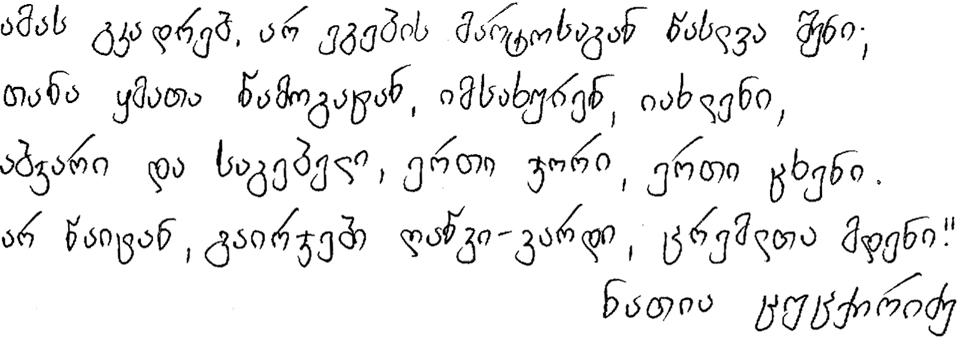 ამას გკადრებ, არ ეგების მარტოსაგან წასლვა შენი;
თანა ყმათა წამოგატან, იმსახურენ, იახლენი,
აბჯარი და საგებელი, ერთი ჯორი, ერთი ცხენი.
არ წაიტან, გაირჯები ღაწვი-ვარდი, ცრემლთა მდენი!"
ნათია ცუცქირიძე